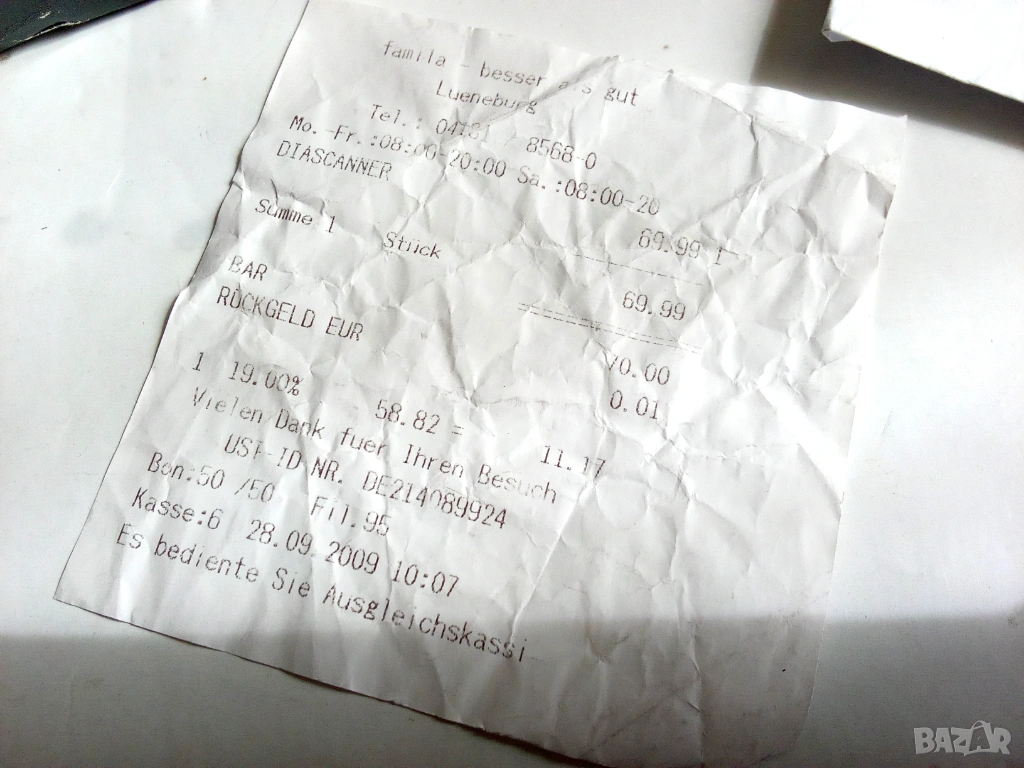 famila - besser als gut
Lueneburg
Tel.: 04131 8568-0
Mo.-Fr.:08:00-20:00 Sa.:08:00-20
DIASCANNER 69.99 1
Summe 1 Stück 69.99
BAR 70.00
RÜCKGELD EUR 0.01
1 19.00% 58.82 = 11.17
Vielen Dank fuer Ihren Besuch
UST-ID NR. DE214089924
Bon:50 /50 Fil.95
Kasse:6 28.09.2009 10:07
Es bediente Sie Ausgleichskassi
BAZAR